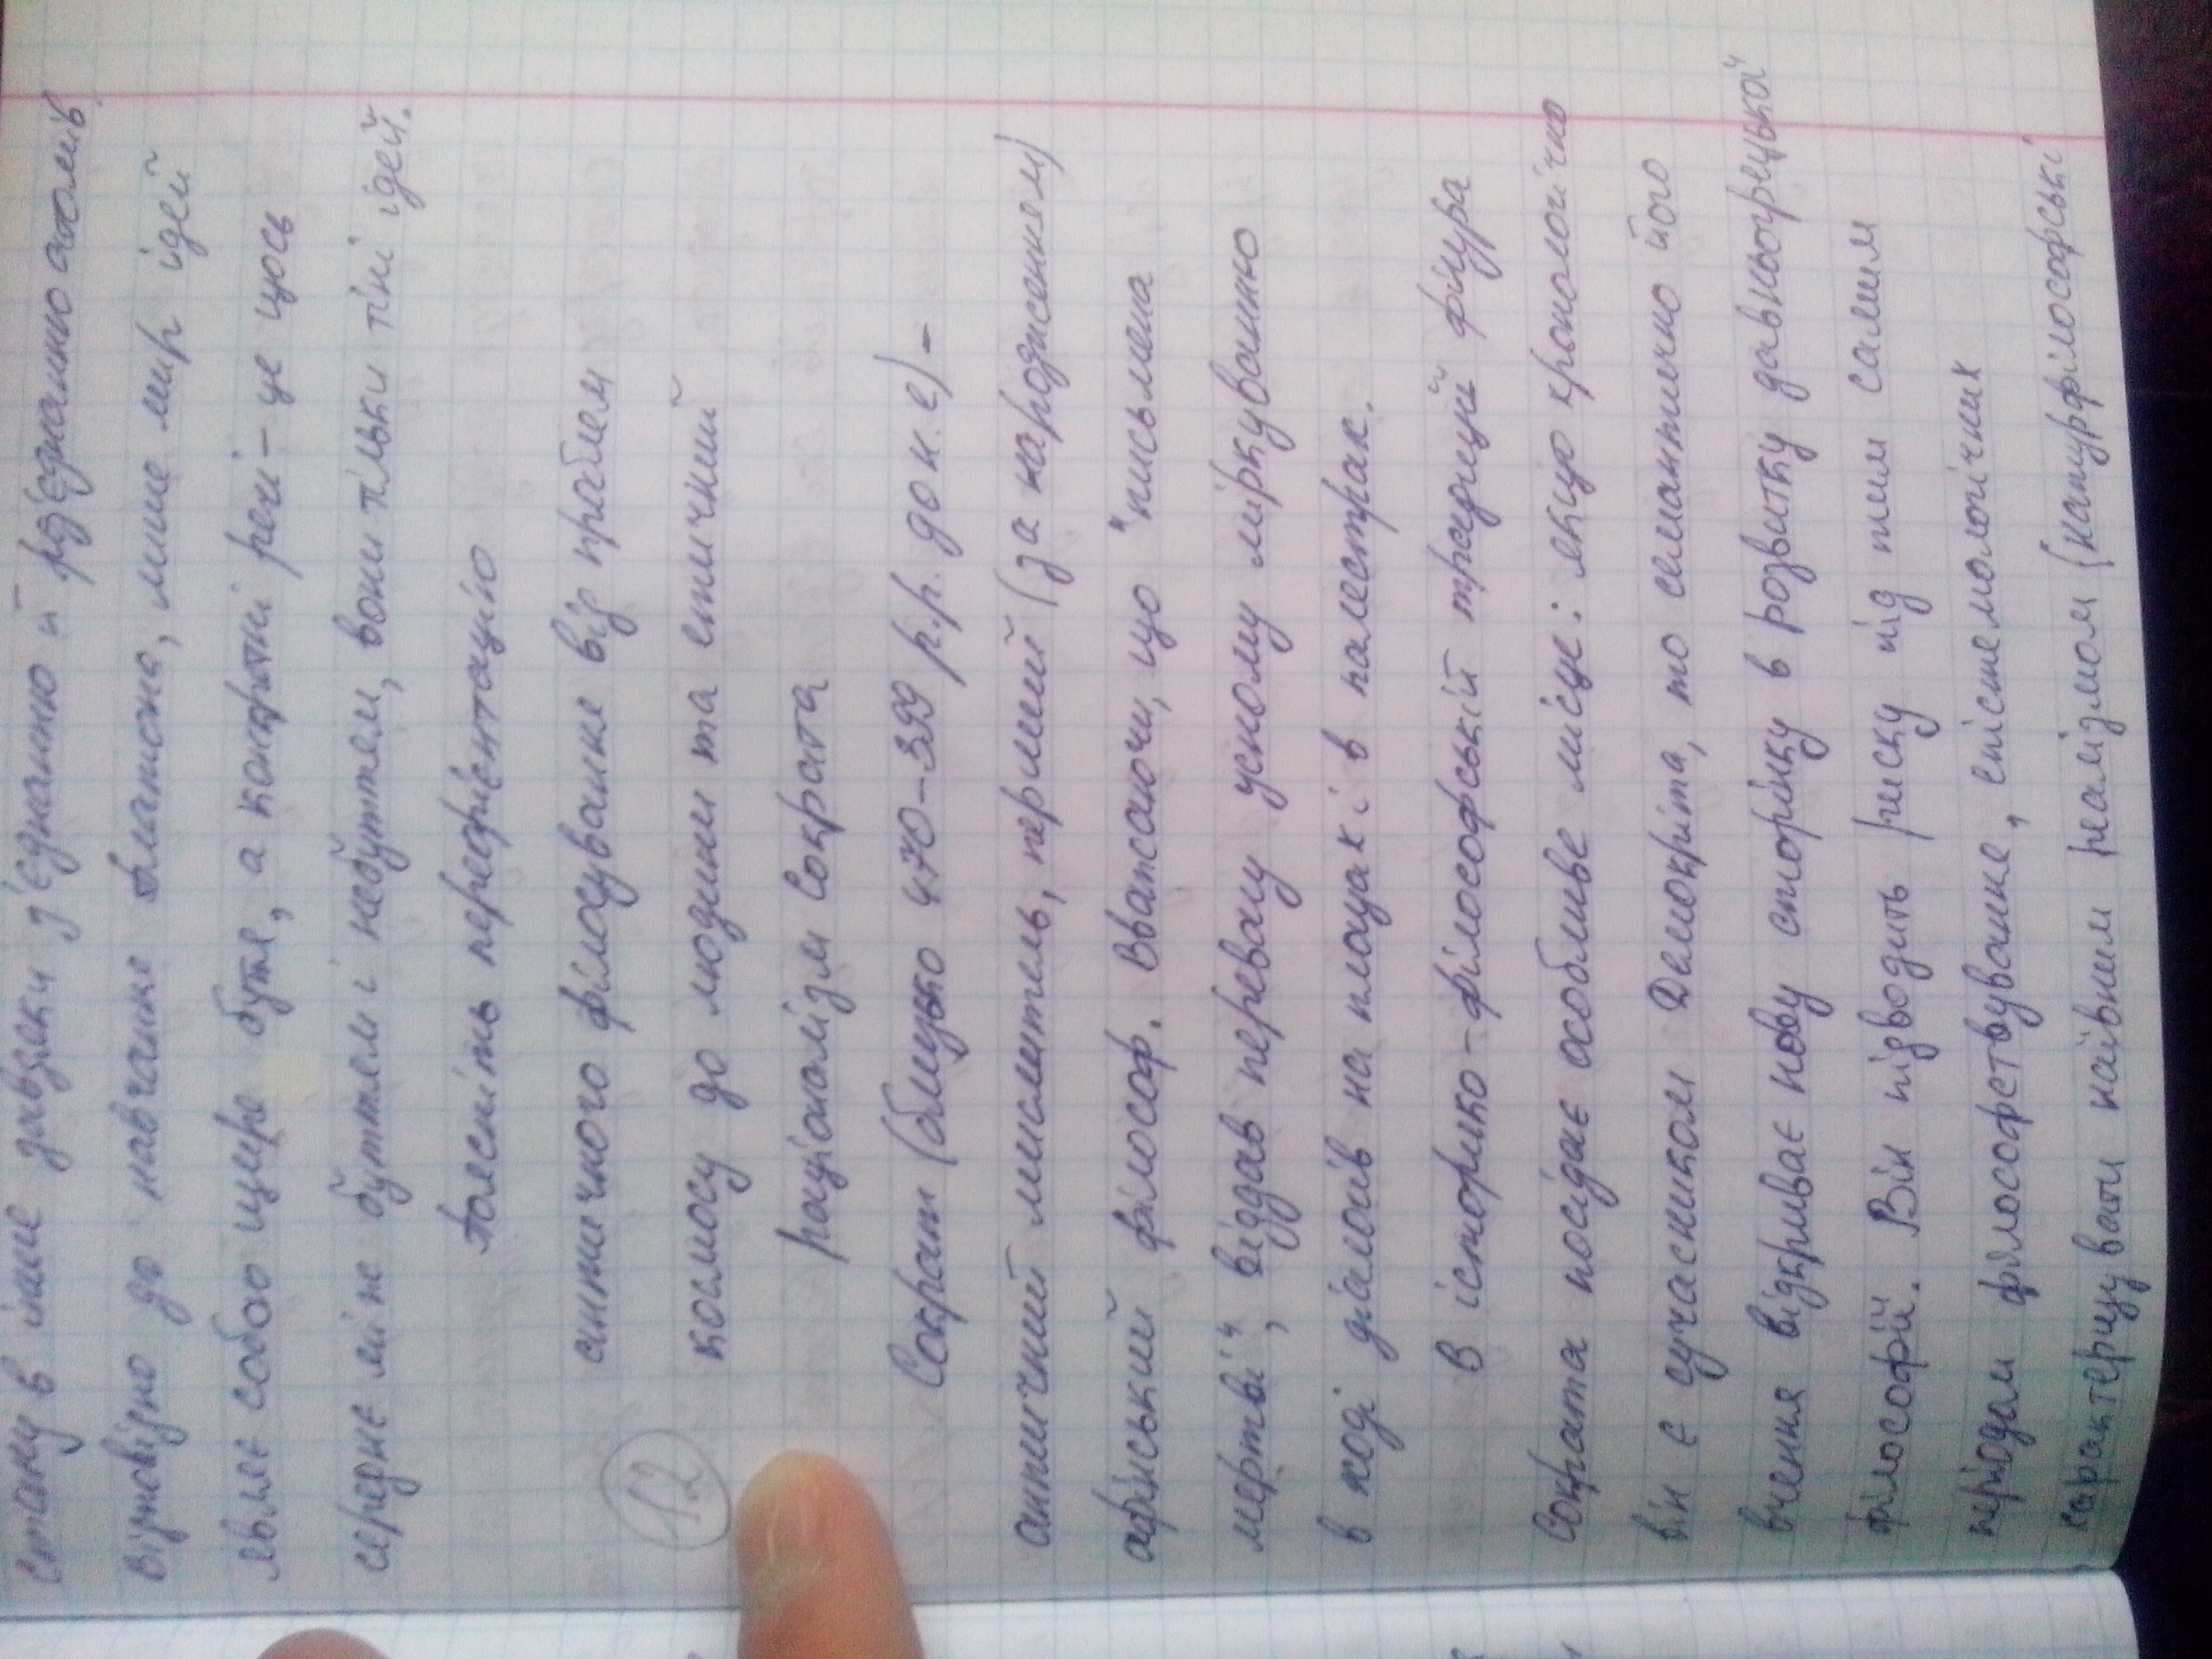 стану в інше завдяки з'єднанню й роз'єднанню атомів.
Відповідно до навчання Платона, лише мир ідей
являє собою щире буте, а конкретні речі - це щось
середнє між буттям і небуттям, вони тільки тіні ідей.
Поясніть переорієнтацію
античного філосування від проблем
12
космосу до людини та етичний
раціоналізм Сократа
Сократ (близько 470-399 р.р. до н.е) -
античний мислитель, перший (за народженням)
афінський філософ. Вважаючи, що "письмена
мертві", віддав перевагу усному міркуванню
в ході діалогів на площах і в палестрах.
В історико-філософській традиції фігура
Сократа посідає особливе місце: якщо хронологічно
він є сучасником Демокріта, то семантично його
вчення відкриває нову сторінку в розвитку давньогрецької
філософії. Він підводить риску під тим самим
періодом філософствування, епістемологічних
характеризувати наївним реалізмом (натурфілософські